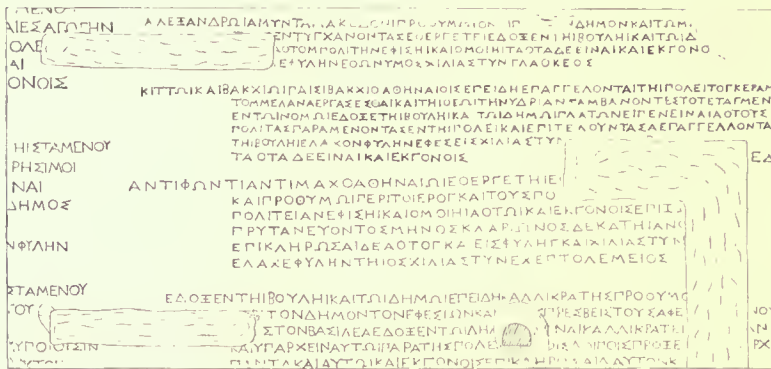 ΜΕΝΟΥ
ΑΙΕΣΑΓΩΓΗΝ
ΠΟΛΕ
ΑΙ
ΟΝΟΙΣ
ΗΙΣΤΑΜΕΝΟΥ
ΡΗΣΙΜΟΙ
ΝΑΙ
ΔΗΜΟΣ
ΝΦΥΛΗΝ
ΣΤΑΜΕΝΟΥ
ΑΛΕΞΑΝΔΡΩΙΑΜΥΝΤΑ ΔΗΜΟΝΚΑΙΤΩΜ
ΕΝΤΥΓΧΑΝΟΝΤΑΣΕΟΕΡΓΕΤΕΙΕΔΟΞΕΝΤΗΙΒΟΥΛΗΙΚΑΙΤΩΙΔ
ΑΟΤΟΜΠΟΛΙΤΗΝΕΦΙΣΗΙΚΑΙΟΜΟΙΗΙΤΑΟΤΑΔΕΕΙΝΑΙΚΑΙΕΚΓΟΝΟ
ΕΦΥΛΗΝΕΩΝΥΜΟΣΧΙΛΙΑΣΤΥΝΓΛΑΟΚΕΟΣ
ΚΙΤΤΩΙΚΑΙΒΑΚΧΙΩΙΠΑΙΣΙΒΑΚΧΙΟΑΘΗΝΑΙΟΙΣΕΠΕΙΔΗΕΠΑΓΓΕΛΟΝΤΑΙΤΗΙΠΟΛΕΙΤΟΓΚΕΡΑΜ
ΤΟΜΜΕΛΑΝΑΕΡΓΑΣΕΣΘΑΙΚΑΙΤΗΙΘΕΩΙΤΗΝΥΔΡΙΑΝ ΛΑΜΒΑΝΟΝΤΕΣΤΟΤΕΤΑΓΜΕΝ
ΕΝΤΩΙΝΟΜΩΙΕΔΟΞΕΤΗΙΒΟΥΛΗΙΚΑ ΤΩΙΔΗΜΩΙΠΛΑΤΩΝΕΙΠΕΝΕΙΝΑΙΑΟΤΟΥΣ
ΠΟΛΙΤΑΣΠΑΡΑΜΕΝΟΝΤΑΣΕΝΤΗΙΠΟΛΕΙΚΑΙΕΠΙΤΕΛΟΥΝΤΑΣΑΕΠΑΓΓΕΛΛΟΝΤΑ
ΤΗΙΒΟΥΛΗΙΕΛΑΧΟΝΦΥΛΗΝΕΦΕΣΕΙΣΧΙΛΙΑΣΤΥΝ
ΤΑΟΤΑΔΕΕΙΝΑΙΚΑΙΕΚΓΟΝΟΙΣ
ΕΔ
ΑΝΤΙΦΩΝΤΙΑΝΤΙΜΑΧΟΑΘΗΝΑΙΩΙΕΟΕΡΓΕΤΗΙΕ
ΚΑΙΠΡΟΘΥΜΩΙΠΕΡΙΤΟΙΕΡΟΓΚΑΙΤΟΥΣΠΟ
ΠΟΛΙΤΕΙΑΝΕΦΙΣΗΙΚΑΙΟΜΟΙΗΙΑΟΤΩΙΚΑΙΕΚΓΟΝΟΙΣΕΠΙΣ
ΠΡΥΤΑΝΕΥΟΝΤΟΣΜΗΝΟΣΚΛΑΡΙΩΝΟΣΔΕΚΑΤΗΙΑΝΟ
ΕΠΙΚΛΗΡΩΣΑΙΔΕΑΟΤΟΓΚΑ ΕΙΣΦΥΛΗΓΚΑΙΧΙΛΙΑΣΤΥΝ
ΕΛΑΧΕΦΥΛΗΝΤΗΙΟΣΧΙΛΙΑΣΤΥΝΕΧΕΠΤΟΛΕΜΕΙΟΣ
ΕΔΟΞΕΝΤΗΙΒΟΥΛΗΙΚΑΙΤΩΙΔΗΜΩΙΕΠΕΙΔΗΚΑΛΛΙΚΡΑΤΗΣΠΡΟΘΥΜΟ
ΤΟΝΔΗΜΟΝΤΟΝΕΦΕΣΙΩΝΚΑΙ ΠΡΕΣΒΕΙΣΤΟΥΣΑΦΕ
ΣΤΟΝΒΑΣΙΛΕΑΕΔΟΞΕΝΤΩΙΔΗΜ ΝΑΙΚΑΛΛΙΚΡΑΤΕΙ
ΚΑΙΥΠΑΡΧΕΙΝΑΥΤΩΙΠΑΡΑΤΗΣΠΟΛΕ
ΠΑΝΤΑΚΑΙΑΥΤΩΙΚΑΙΕΚΓΟΝΟΙΣ